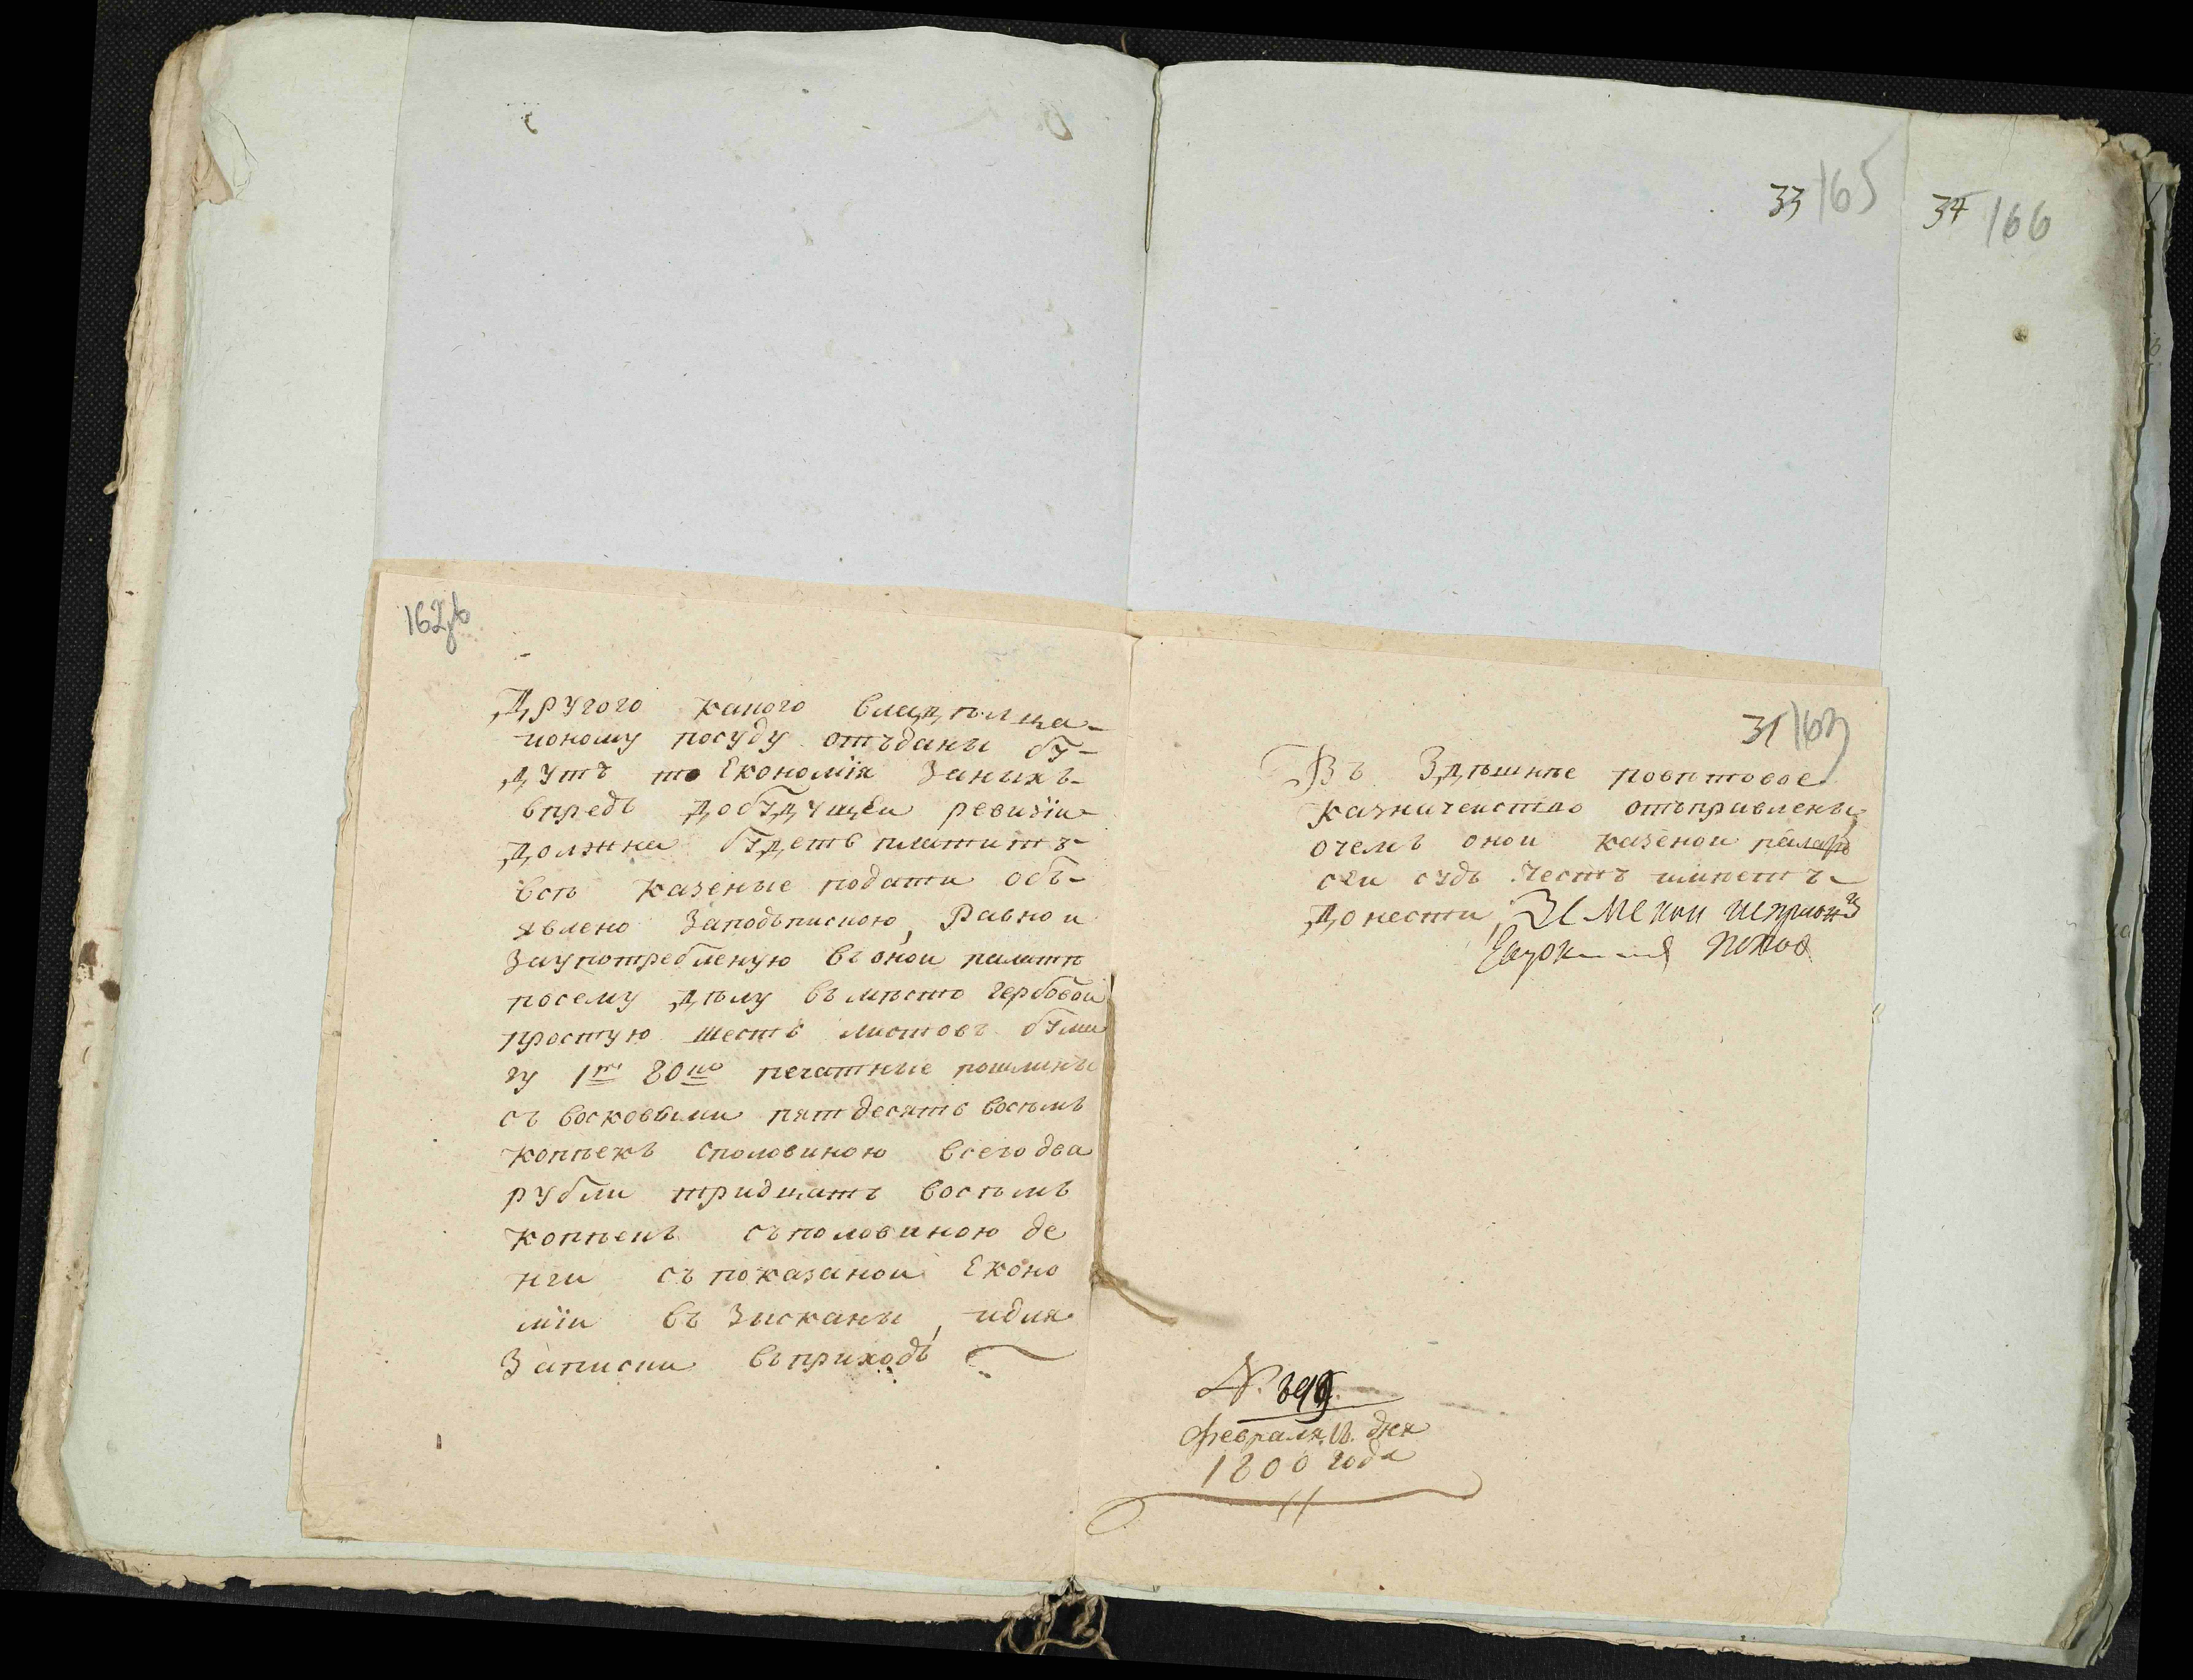 33 165
34 166
162 зв
Другого какого владѣлца
поному посуду отъданы бу-
дутъ то Економія заныхъ
впредь добудущеи ревизіи
должна будетъ платитъ
всѣ казеные подати объ-
явлено заподъпискою, Равно и
заупотребленую въ онои палатѣ
посему дѣлу въмѣсто гербовои
простую шесть листовъ бума
гу 1 ру 80 ко печатные пошлины
съ восковыми пятдесятъ восѣмь
копѣекъ споловиною всего два
рубли тридцать восѣмь
копѣекъ съполовиною де
нги съ показаной Еконо
міи въ зысканы, идля
Записки въприходъ
31 163
Въ Здѣшнѣе повѣтовое
казначеиство отъправлены,
очемъ онои казенои палатѣ
сеи судъ честь имѣетъ
Донести, Земскои исправник
Евдоким Попов
№. 399.
февраля. 18. дня
1800 года